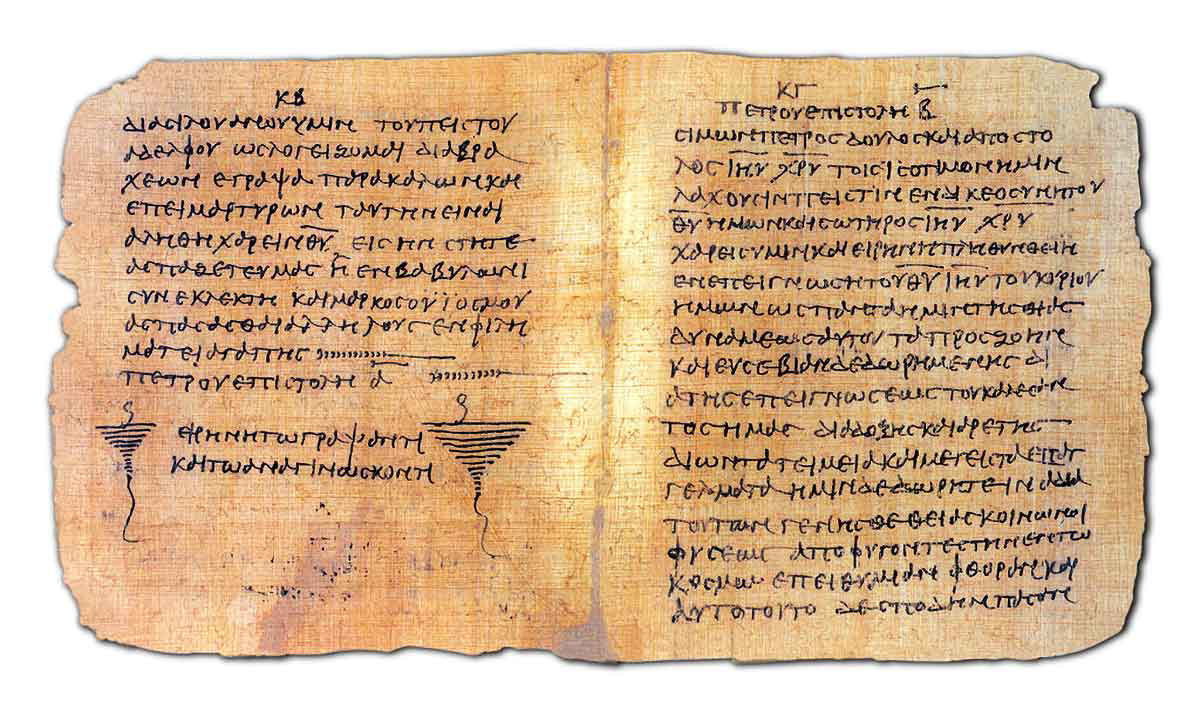 ΚΒ
ΔΙΑϹΙΛΟΥΑΝΟΥΥΜΙΝ ΤΟΥΠΕΙϹΤΟΥ
ΑΔΕΛΦΟΥ ΩϹΛΟΓΕΙΖΟΜΑΙ ΔΙΑΒΡΑ
ΧΕΩΝ ΕΓΡΑΨΑ ΠΑΡΑΚΑΛΩΝΚΑΙ
ΕΠΕΙΜΑΡΤΥΡΩΝ ΤΑΥΤΗΝΕΙΝΑΙ
ΑΛΗΘΗΧΑΡΕΙΝΘ̅Υ̅ ΕΙϹΗΝ ϹΤΗΤΕ
ΑϹΠΑΖΕΤΕΥΜΑϹ Η ΕΝΒΑΒΥΛΩΝΙ
ϹΥΝΕΚΛΕΚΤΗ ΚΑΙΜΑΡΚΟϹΟΥΙΟϹΜΟΥ
ΑϹΠΑϹΑϹΘΑΙΑΛΛΗΛΟΥϹ ΕΝΦΙΛΗ
ΜΑΤΕΙΑΓΑΠΗϹ
ΠΕΤΡΟΥΕΠΙϹΤΟΛΗ Α̅
ΕΙΡΗΝΗΤΩΓΡΑΨΑΝΤΙ
ΚΑΙΤΩΑΝΑΓΙΝΩϹΚΟΝΤΙ
ΚΓ
ΠΕΤΡΟΥΕΠΙϹΤΟΛΗ Β̅
ϹΙΜΩΝΠΕΤΡΟϹ ΔΟΥΛΟϹΚΑΙΑΠΟϹΤΟ
ΛΟϹ Ι̅Η̅Υ̅ Χ̅Ρ̅Υ̅ ΤΟΙϹ ΙϹΟΤΙΜΟΝΗΜΙΝ
ΛΑΧΟΥϹΙΝΠΕΙϹΤΙΝ ΕΝΔΙΚΕΟϹΥΝΗΤΟΥ
Θ̅Υ̅ ΗΜΩΝΚΑΙϹΩΤΗΡΟϹ Ι̅Η̅Υ̅ Χ̅Ρ̅Υ̅
ΧΑΡΕΙϹΥΜΙΝΚΑΙΕΙΡΗΝΗΠΛΗΘΥΝΘΕΙΗ
ΕΝΕΠΕΙΓΝΩϹΗΤΟΥΘ̅Υ̅ Ι̅Η̅Υ̅ ΤΟΥΚΥΡΙΟΥ
ΗΜΩΝ ΩϹΠΑΝΤΑΗΜΙΝΤΗϹΘΙΑϹ
ΔΥΝΑΜΕΩϹΑΥΤΟΥ ΤΑΠΡΟϹΖΩΗΝ
ΚΑΙΕΥϹΕΒΙΑΝΔΕΔΩΡΗΜΕΝΗϹ ΔΙ
ΑΤΗϹΕΠΕΙΓΝΩϹΕΩϹΤΟΥΚΑΛΕϹΑΝ
ΤΟϹΗΜΑϹ ΔΙΑΔΟΞΗϹΚΑΙΑΡΕΤΗϹ
ΔΙΩΝΤΑΤΕΙΜΕΙΑΚΑΙΜΕΓΕΙϹΤΑΕΠΑΓ
ΓΕΛΜΑΤΑ ΗΜΙΝΔΕΔΩΡΗΤΕΙΝΑΔΙΑ
ΤΟΥΤΩΝ ΓΕΝΗϹΘΕΘΕΙΑϹΚΟΙΝΩΝΟΙ
ΦΥϹΕΩϹ ΑΠΟΦΥΓΟΝΤΕϹΤΗΝΕΝΤΩ
ΚΟϹΜΩ ΕΠΕΙΘΥΜΙΑΝ ΦΘΟΡΑΝ ΚΑΙ
ΑΥΤΟΤΟΥΤΟ ΔΕϹΠΟΔΗΝΠΑϹΑΝ